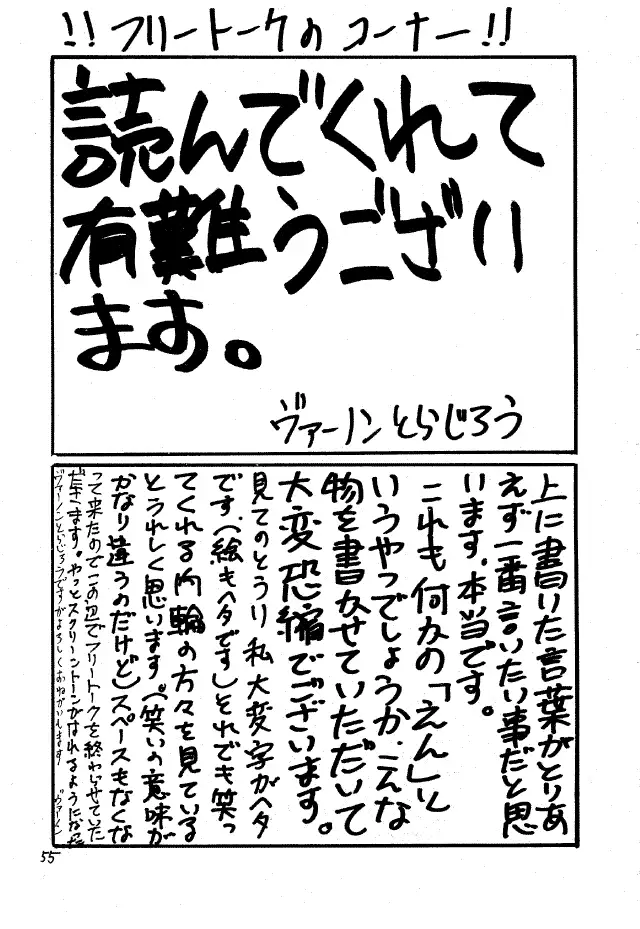 !!フリートークのコーナー!!
読んでくれて
有難うござい
ます。
ヴァーノンとらじろう
上に書いた言葉がとりあ
えず一番言いたい事だと思
います。本当です。
これも何かの「えん」と
いうやつでしょうか、こんな
物を書かせていただいて
大変恐縮でございます。
見てのとうり私大変字がヘタ
です、(絵もヘタです)それでも笑っ
てくれる内輪の方々を見ている
とうれしく思います。(笑いの意味が
かなり違うのだけど)スペースもなくな
って来たのでこの辺でフリートークを終わらせていた
だきます。やっとスクリーントーンがはれるようになった
ヴァーノンとらじろうですがよろしくおねがいします ヴァーノン
55